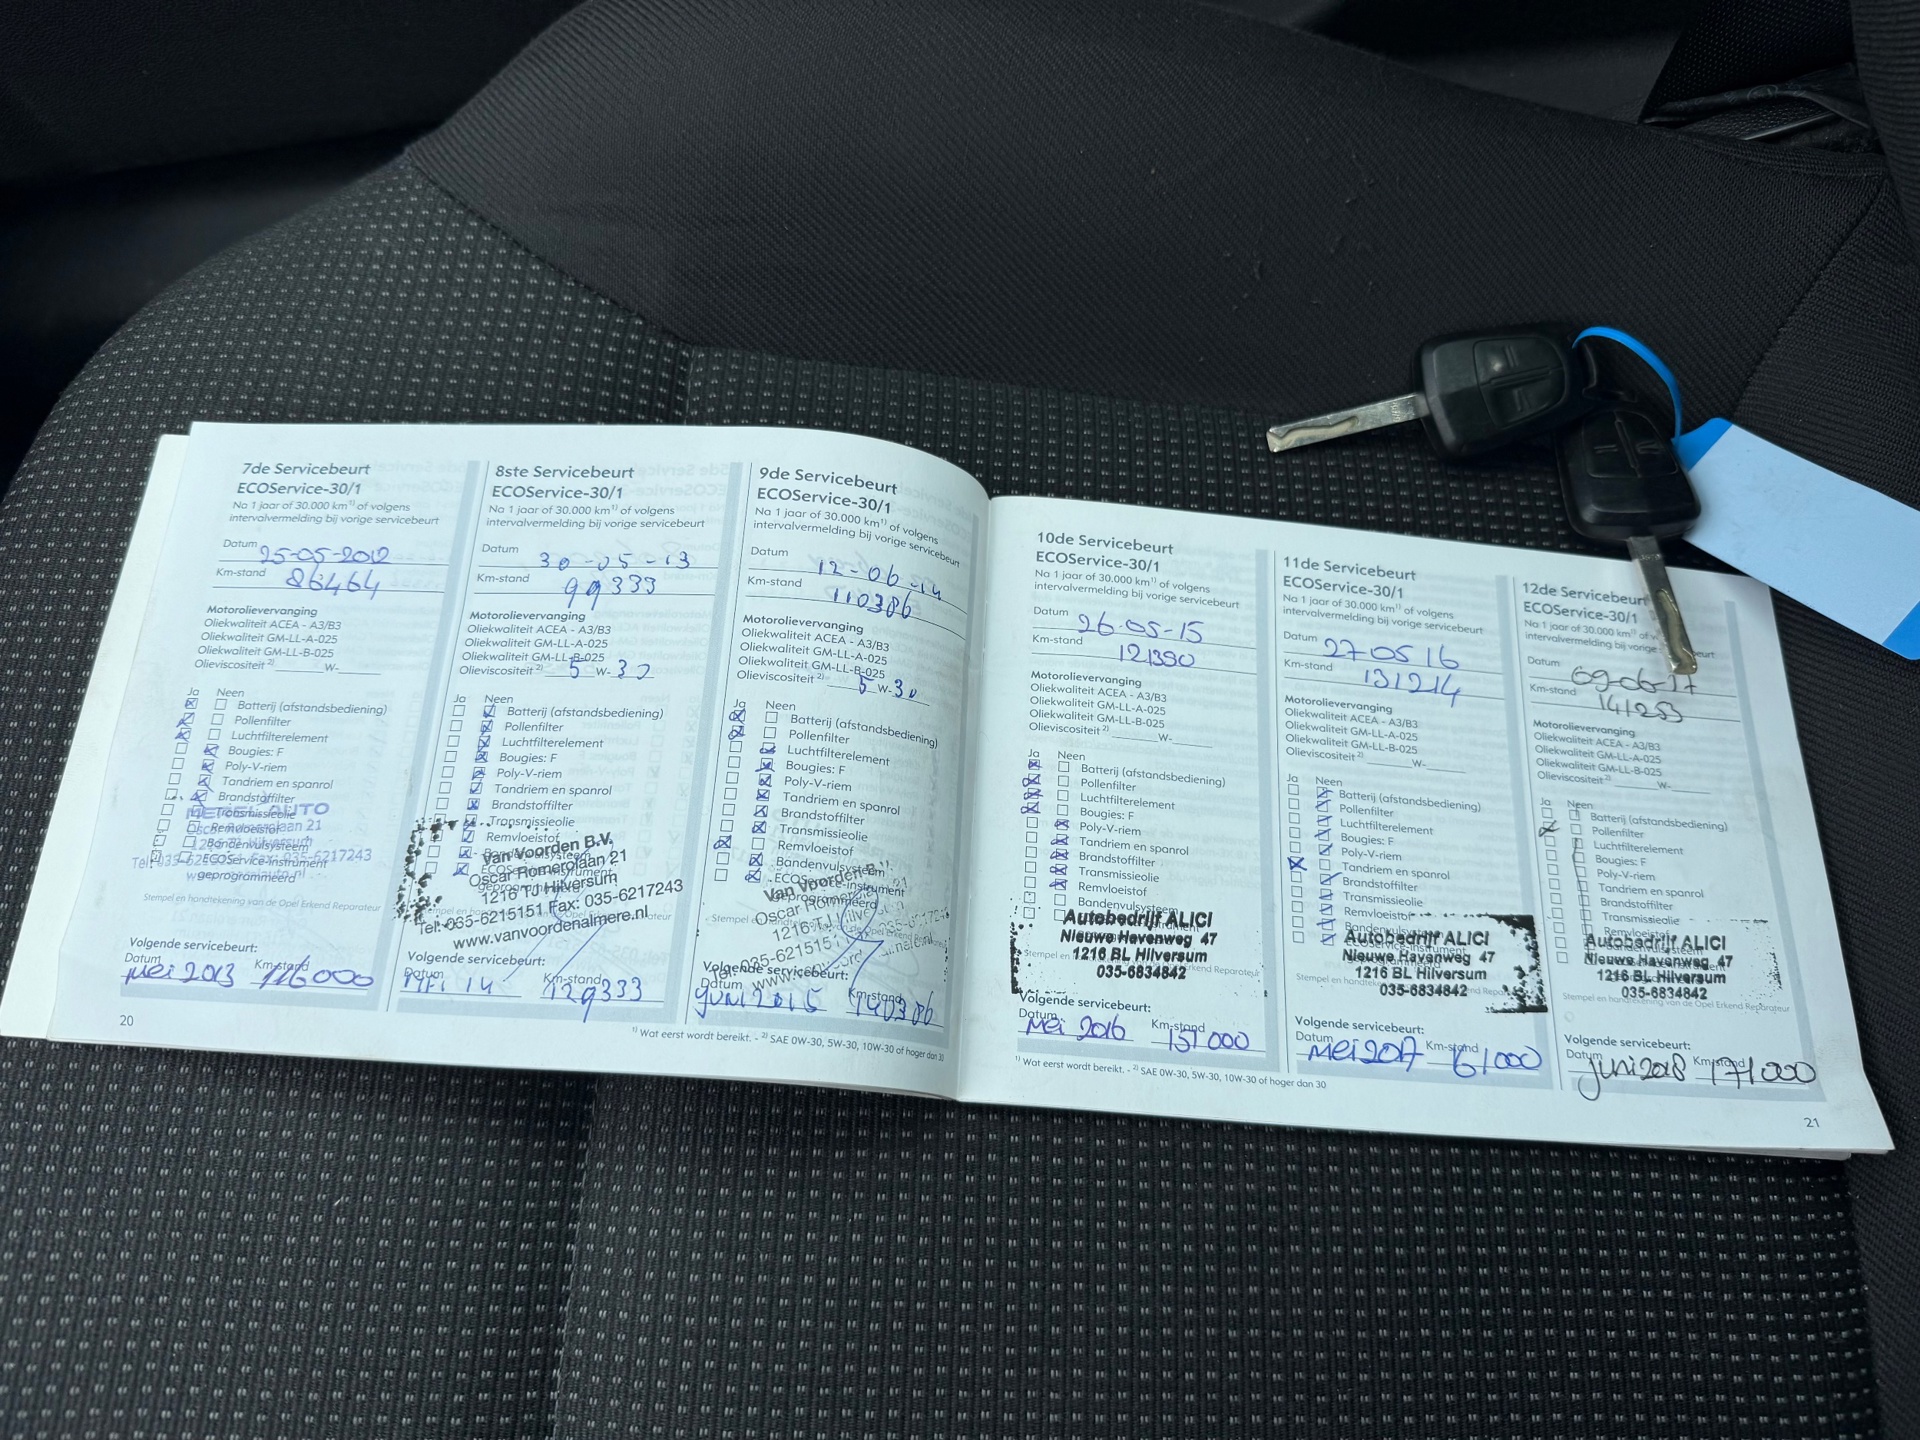 7de Servicebeurt
ECOService-30/1
Na 1 jaar of 30.000 km¹⁾ of volgens
intervalvermelding bij vorige servicebeurt
Datum 25-05-2012
Km-stand 86464
Motorolievervanging
Oliekwaliteit ACEA - A3/B3
Oliekwaliteit GM-LL-A-025
Oliekwaliteit GM-LL-B-025
Olieviscositeit ²⁾ ______W-______
Ja Neen
Batterij (afstandsbediening)
Pollenfilter
Luchtfilterelement
Bougies: F
Poly-V-riem
Tandriem en spanrol
Brandstoffilter
Transmissieolie
Remvloeistof
Bandenvulsysteem
ECOService-instrument
geprogrammeerd
035-6217243
Stempel en handtekening van de Opel Erkend Reparateur
Volgende servicebeurt:
Datum Km-stand
mei 2013 116000
20
8ste Servicebeurt
ECOService-30/1
Na 1 jaar of 30.000 km¹⁾ of volgens
intervalvermelding bij vorige servicebeurt
Datum 30-05-13
Km-stand 99333
Motorolievervanging
Oliekwaliteit ACEA - A3/B3
Oliekwaliteit GM-LL-A-025
Oliekwaliteit GM-LL-B-025
Olieviscositeit ²⁾ 5 W-30
Ja Neen
Batterij (afstandsbediening)
Pollenfilter
Luchtfilterelement
Bougies: F
Poly-V-riem
Tandriem en spanrol
Brandstoffilter
Transmissieolie
Remvloeistof
van Voorden B.V.
Oscar Romerolaan 21
1216 TJ Hilversum
Tel.:035-6215151 Fax: 035-6217243
www.vanvoordenalmere.nl
Volgende servicebeurt:
Datum Km-stand
14 129333
9de Servicebeurt
ECOService-30/1
Na 1 jaar of 30.000 km¹⁾ of volgens
intervalvermelding bij vorige servicebeurt
Datum 12-06-14
Km-stand 110386
Motorolievervanging
Oliekwaliteit ACEA - A3/B3
Oliekwaliteit GM-LL-A-025
Oliekwaliteit GM-LL-B-025
Olieviscositeit ²⁾ 5 W-30
Ja Neen
Batterij (afstandsbediening)
Pollenfilter
Luchtfilterelement
Bougies: F
Poly-V-riem
Tandriem en spanrol
Brandstoffilter
Transmissieolie
Remvloeistof
Bandenvulsysteem
ECOService-instrument
geprogrammeerd
Van Voorden B
Volgende servicebeurt:
Datum Km-stand
juni 2015 140386
¹⁾ Wat eerst wordt bereikt. - ²⁾ SAE 0W-30, 5W-30, 10W-30 of hoger dan 30
10de Servicebeurt
ECOService-30/1
Na 1 jaar of 30.000 km¹⁾ of volgens
intervalvermelding bij vorige servicebeurt
Datum 26-05-15
Km-stand 121390
Motorolievervanging
Oliekwaliteit ACEA - A3/B3
Oliekwaliteit GM-LL-A-025
Oliekwaliteit GM-LL-B-025
Olieviscositeit ²⁾ ______W-______
Ja Neen
Batterij (afstandsbediening)
Pollenfilter
Luchtfilterelement
Bougies: F
Poly-V-riem
Tandriem en spanrol
Brandstoffilter
Transmissieolie
Remvloeistof
Bandenvulsysteem
Autobedrijf ALICI
Nieuwe Havenweg 47
1216 BL Hilversum
035-6834842
Volgende servicebeurt:
Datum Km-stand
Mei 2016 151000
¹⁾ Wat eerst wordt bereikt. - ²⁾ SAE 0W-30, 5W-30, 10W-30 of hoger dan 30
11de Servicebeurt
ECOService-30/1
Na 1 jaar of 30.000 km¹⁾ of volgens
intervalvermelding bij vorige servicebeurt
Datum 27 05 16
Km-stand 131214
Motorolievervanging
Oliekwaliteit ACEA - A3/B3
Oliekwaliteit GM-LL-A-025
Oliekwaliteit GM-LL-B-025
Olieviscositeit ²⁾ ______W-______
Ja Neen
Batterij (afstandsbediening)
Pollenfilter
Luchtfilterelement
Bougies: F
Poly-V-riem
Tandriem en spanrol
Brandstoffilter
Transmissieolie
Remvloeistof
Autobedrijf ALICI
Nieuwe Havenweg 47
1216 BL Hilversum
035-6834842
Volgende servicebeurt:
Datum Km-stand
Mei 2017 161000
12de Servicebeurt
ECOService-30/1
Na 1 jaar of 30.000 km¹⁾ of
intervalvermelding bij vorige
Datum 09-06-17
Km-stand 141253
Motorolievervanging
Oliekwaliteit ACEA - A3/B3
Oliekwaliteit GM-LL-A-025
Oliekwaliteit GM-LL-B-025
Olieviscositeit ²⁾ ______W-______
Ja Neen
Batterij (afstandsbediening)
Pollenfilter
Luchtfilterelement
Bougies: F
Poly-V-riem
Tandriem en spanrol
Brandstoffilter
Transmissieolie
Remvloeistof
Autobedrijf ALICI
Nieuwe Havenweg 47
1216 BL Hilversum
035-6834842
Stempel en handtekening van de Opel Erkend Reparateur
Volgende servicebeurt:
Datum Km-stand
juni 2018 171000
21